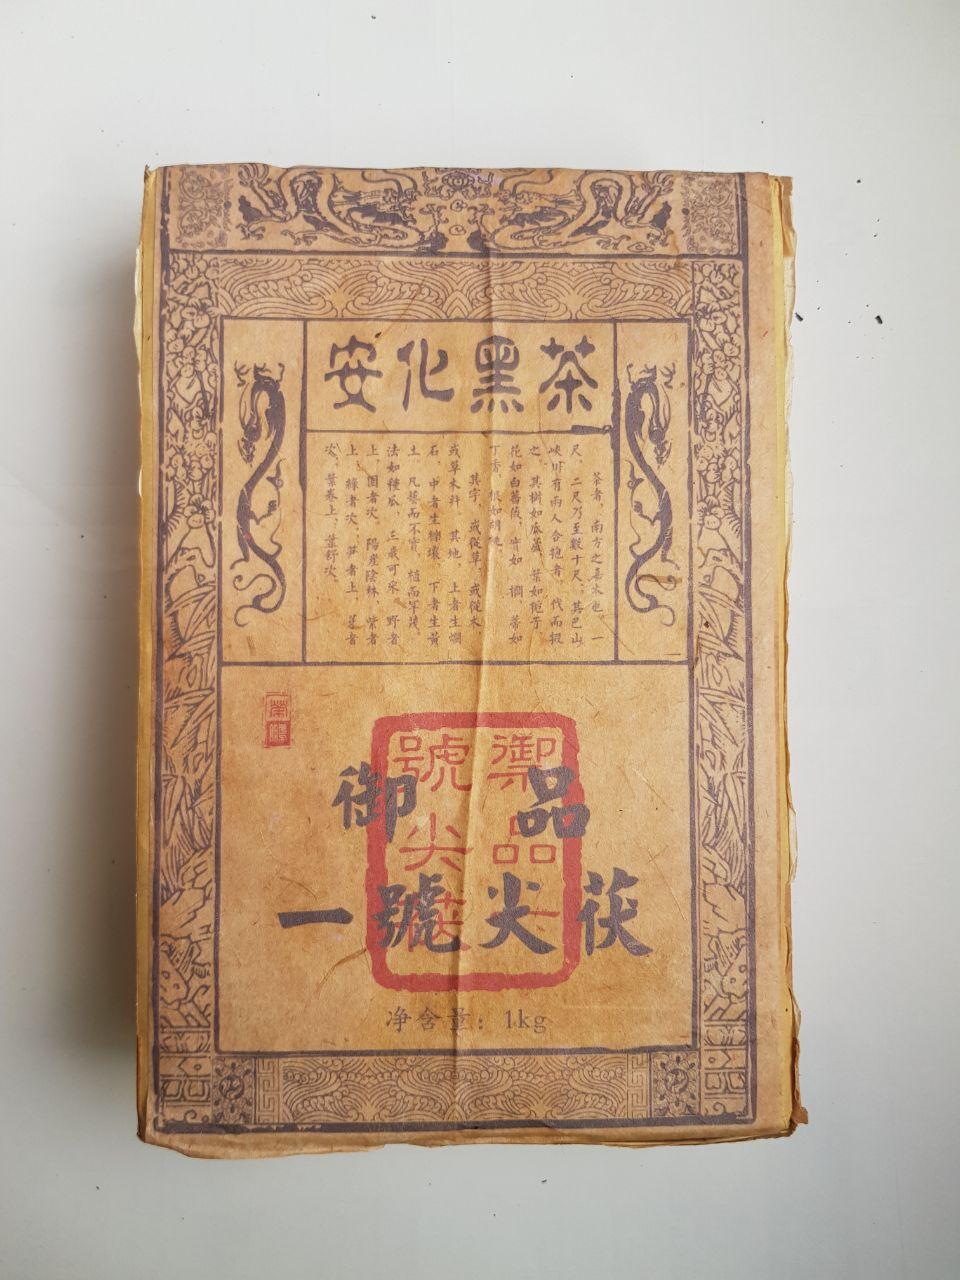 安化黑茶
茶者，南方之嘉木也，一
尺、二尺乃至數十尺；其巴山
峽川有兩人合抱者，伐而掇
之，其樹如瓜蘆，葉如梔子，
花如白薔薇，實如 櫚，蒂如
丁香，根如胡桃。
其字，或從草，或從木，
或草木幷。其地，上者生爛
石，中者生櫟壤，下者生黃
土。凡藝而不實，植而罕茂，
法如種瓜，三歲可采。野者
上，園者次；陽崖陰林，紫者
上，綠者次；笋者上，芽者
次；葉卷上，葉舒次。
御品
號尖
御品
一號尖茯
净含量：1kg